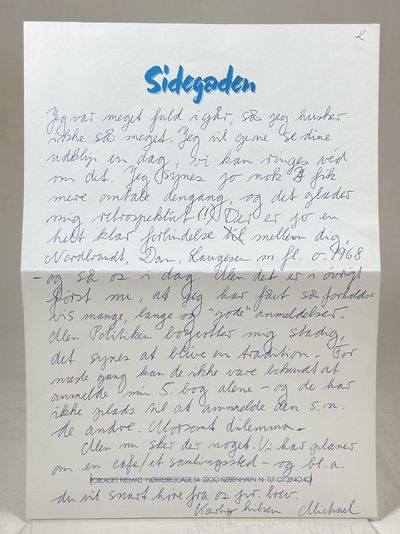 2
Sidegaden
Jeg var meget fuld i går, så jeg husker
ikke så meget. Jeg vil gerne se dine
udklip en dag, vi kan ringes ved
om det. Jeg synes jo nok I fik
mere omtale dengang, og det glæder
mig retrospektivt (!) Der er jo en
helt klar forbindelse til mellem dig,
Nordbrandt, Dan, Laugesen m. fl. o. 1968
- og så os i dag. Men det er i øvrigt
først nu, at jeg har fået så forholds-
vis mange, lange og "gode" anmeldelser.
Men Politiken boycotter mig stadig,
det synes at blive en tradition. For
næste gang kan de ikke være bekendt at
anmelde min 5. bog alene - og de har
ikke plads til at anmelde den s.n.
de andre. Morsomt dilemma.
Men nu sker der noget. Vi har planer
om en cafe/et samlingssted - og bl.a.
FORLAGET FREMAD · NØRREBROGADE 54 · 2200 KØBENHAVN N · TLF. 01
du vil snart høre fra os pr. brev.
Kærlig hilsen Michael